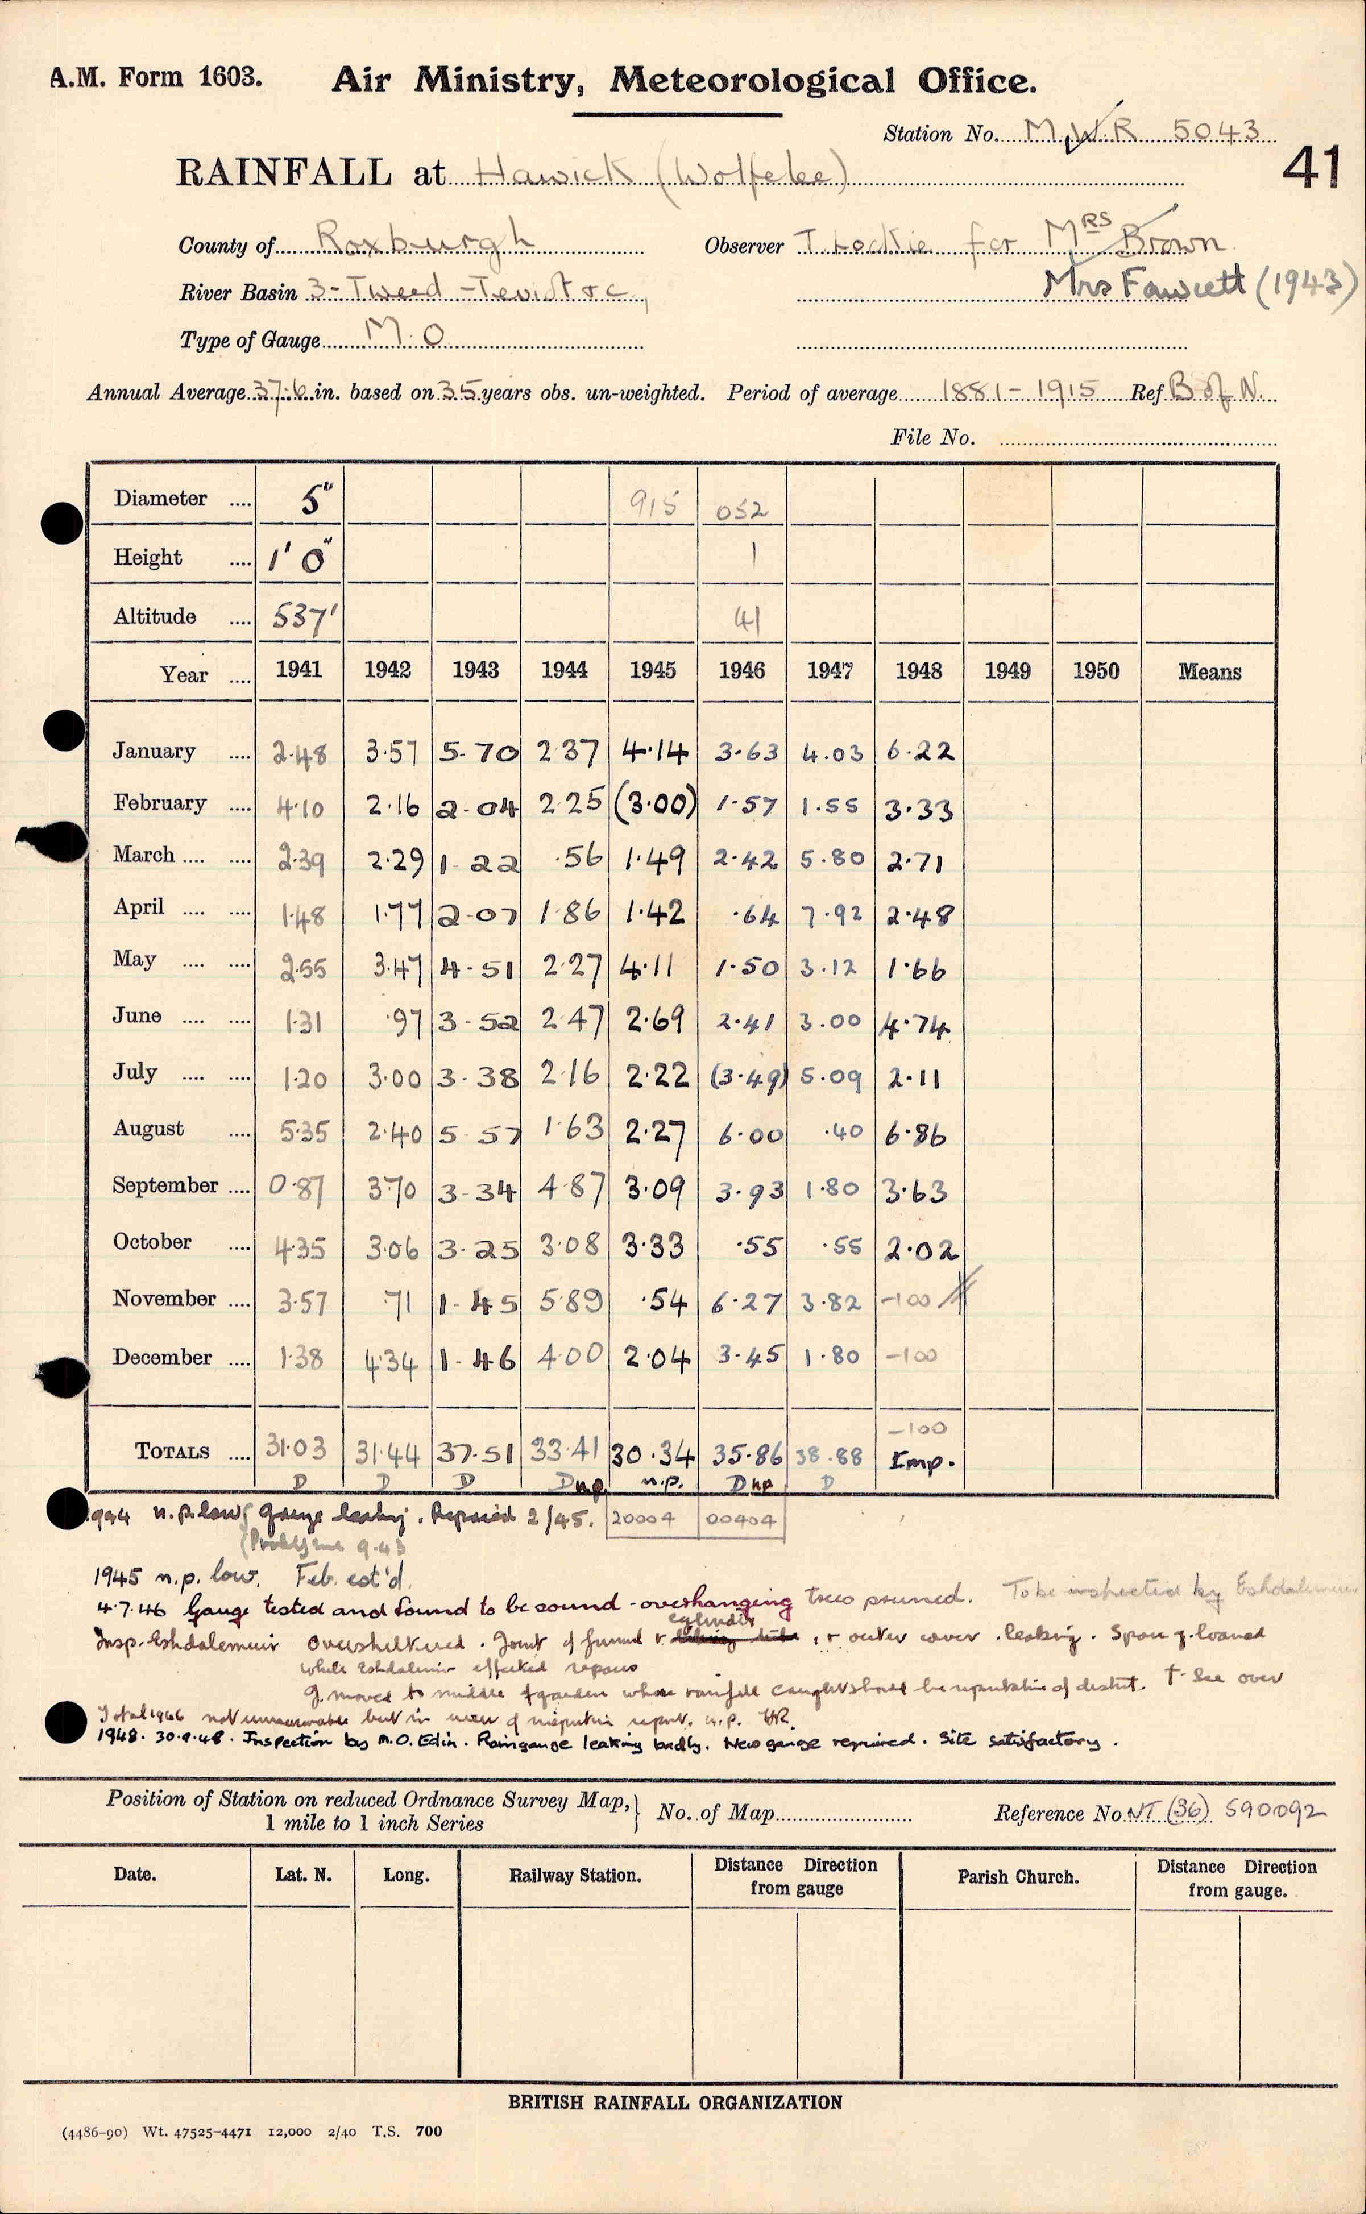 A.M. Form 1603. Air Ministry, Meteorological Office.
Station No. M.W.R 5043
41
RAINFALL at Hawick (Wolfelee)
County of Roxburgh Observer T. Lockie for Mrs Brown
River Basin 3-Tweed-Teviot &c., Mrs Fawcett (1943)
Type of Gauge M.O
Annual Average 37.6 in. based on 35 years obs. un-weighted. Period of average 1881-1915 Ref B of N.
File No.
Diameter .... 5" 915 052
Height .... 1' 0" 1
Altitude .... 537' 41
Year .... 1941 1942 1943 1944 1945 1946 1947 1948 1949 1950 Means
January .... 2.48 3.57 5.70 2.37 4.14 3.63 4.03 6.22
February .... 4.10 2.16 2.04 2.25 (3.00) 1.57 1.55 3.33
March .... .... 2.39 2.29 1.22 .56 1.49 2.42 5.80 2.71
April .... .... 1.48 1.77 2.07 1.86 1.42 .64 7.92 2.48
May .... .... 2.55 3.47 4.51 2.27 4.11 1.50 3.12 1.66
June .... .... 1.31 .97 3.52 2.47 2.69 2.41 3.00 4.74
July .... .... 1.20 3.00 3.38 2.16 2.22 (3.49) 5.09 2.11
August .... 5.35 2.40 5.57 1.63 2.27 6.00 .40 6.86
September .... 0.87 3.70 3.34 4.87 3.09 3.93 1.80 3.63
October .... 4.35 3.06 3.25 3.08 3.33 .55 .55 2.02
November .... 3.57 .71 1.45 5.89 .54 6.27 3.82 -100
December .... 1.38 4.34 1.46 4.00 2.04 3.45 1.80 -100
-100
TOTALS .... 31.03 31.44 37.51 33.41 30.34 35.86 38.88 Imp.
D D D D n.p. n.p. D n.p. D
1944 n.p. low gauge leaking. Repaired 2/45. 20004 00404
9.43
1945 n.p. low. Feb. est'd.
4.7.46 Gauge tested and found to be sound - overhanging trees pruned. To be inspected by Eskdalemuir
cylinder
Insp. Eskdalemuir Oversheltered. Joint of funnel & & outer cover leaking. Spare g. loaned
while Eskdalemuir effected repairs
G. moved to middle of garden where rainfall caught should be representative of district. † See over
Total 1946 not unreasonable but in view of report. n.p.
1948. 30.9.48. Inspection by M.O. Edin. Raingauge leaking badly. New gauge required. Site satisfactory.
Position of Station on reduced Ordnance Survey Map, 1 mile to 1 inch Series } No. of Map Reference No. NT (36) 590092
Date. Lat. N. Long. Railway Station. Distance Direction from gauge Parish Church. Distance Direction from gauge.
BRITISH RAINFALL ORGANIZATION
(4486-90) Wt. 47525-4471 12,000 2/40 T.S. 700